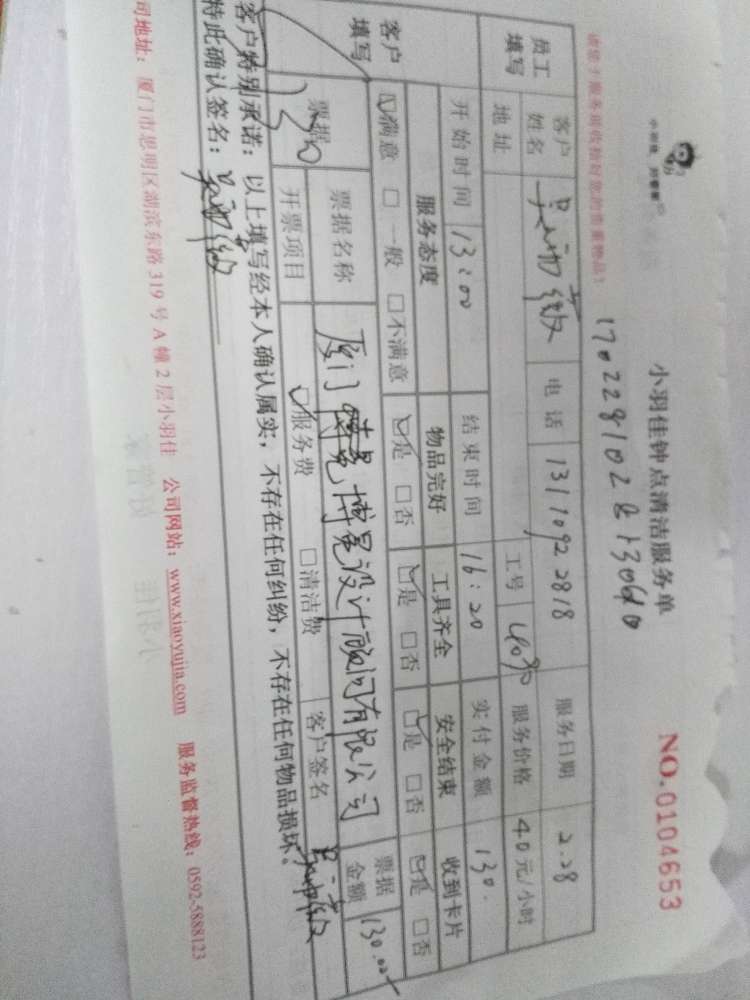 小羽佳 好帮家
小羽佳钟点清洁服务单
NO.0104653
请您于服务前收拾好您的贵重物品！
员工填写
客户姓名
电话 13110922818
服务日期 2.28
地址
工号
服务价格 40元/小时
客户填写
开始时间 13:00
结束时间 16:20
实付金额 130.
服务态度 物品完好 工具齐全 安全结束 收到卡片
☑满意 □一般 □不满意 ☑是 □否 ☑是 □否 ☑是 □否 ☑是 □否
票据
票据名称 厦门博景设计顾问有限公司
票据金额 130.00
开票项目 ☑服务费 □清洁费 客户签名
客户特别承诺：以上填写经本人确认属实，不存在任何纠纷，不存在任何物品损坏。
特此确认签名：
司地址：厦门市思明区湖滨东路319号A幢2层小羽佳 公司网站：www.xiaoyujia.com 服务监督热线：0592-5888123